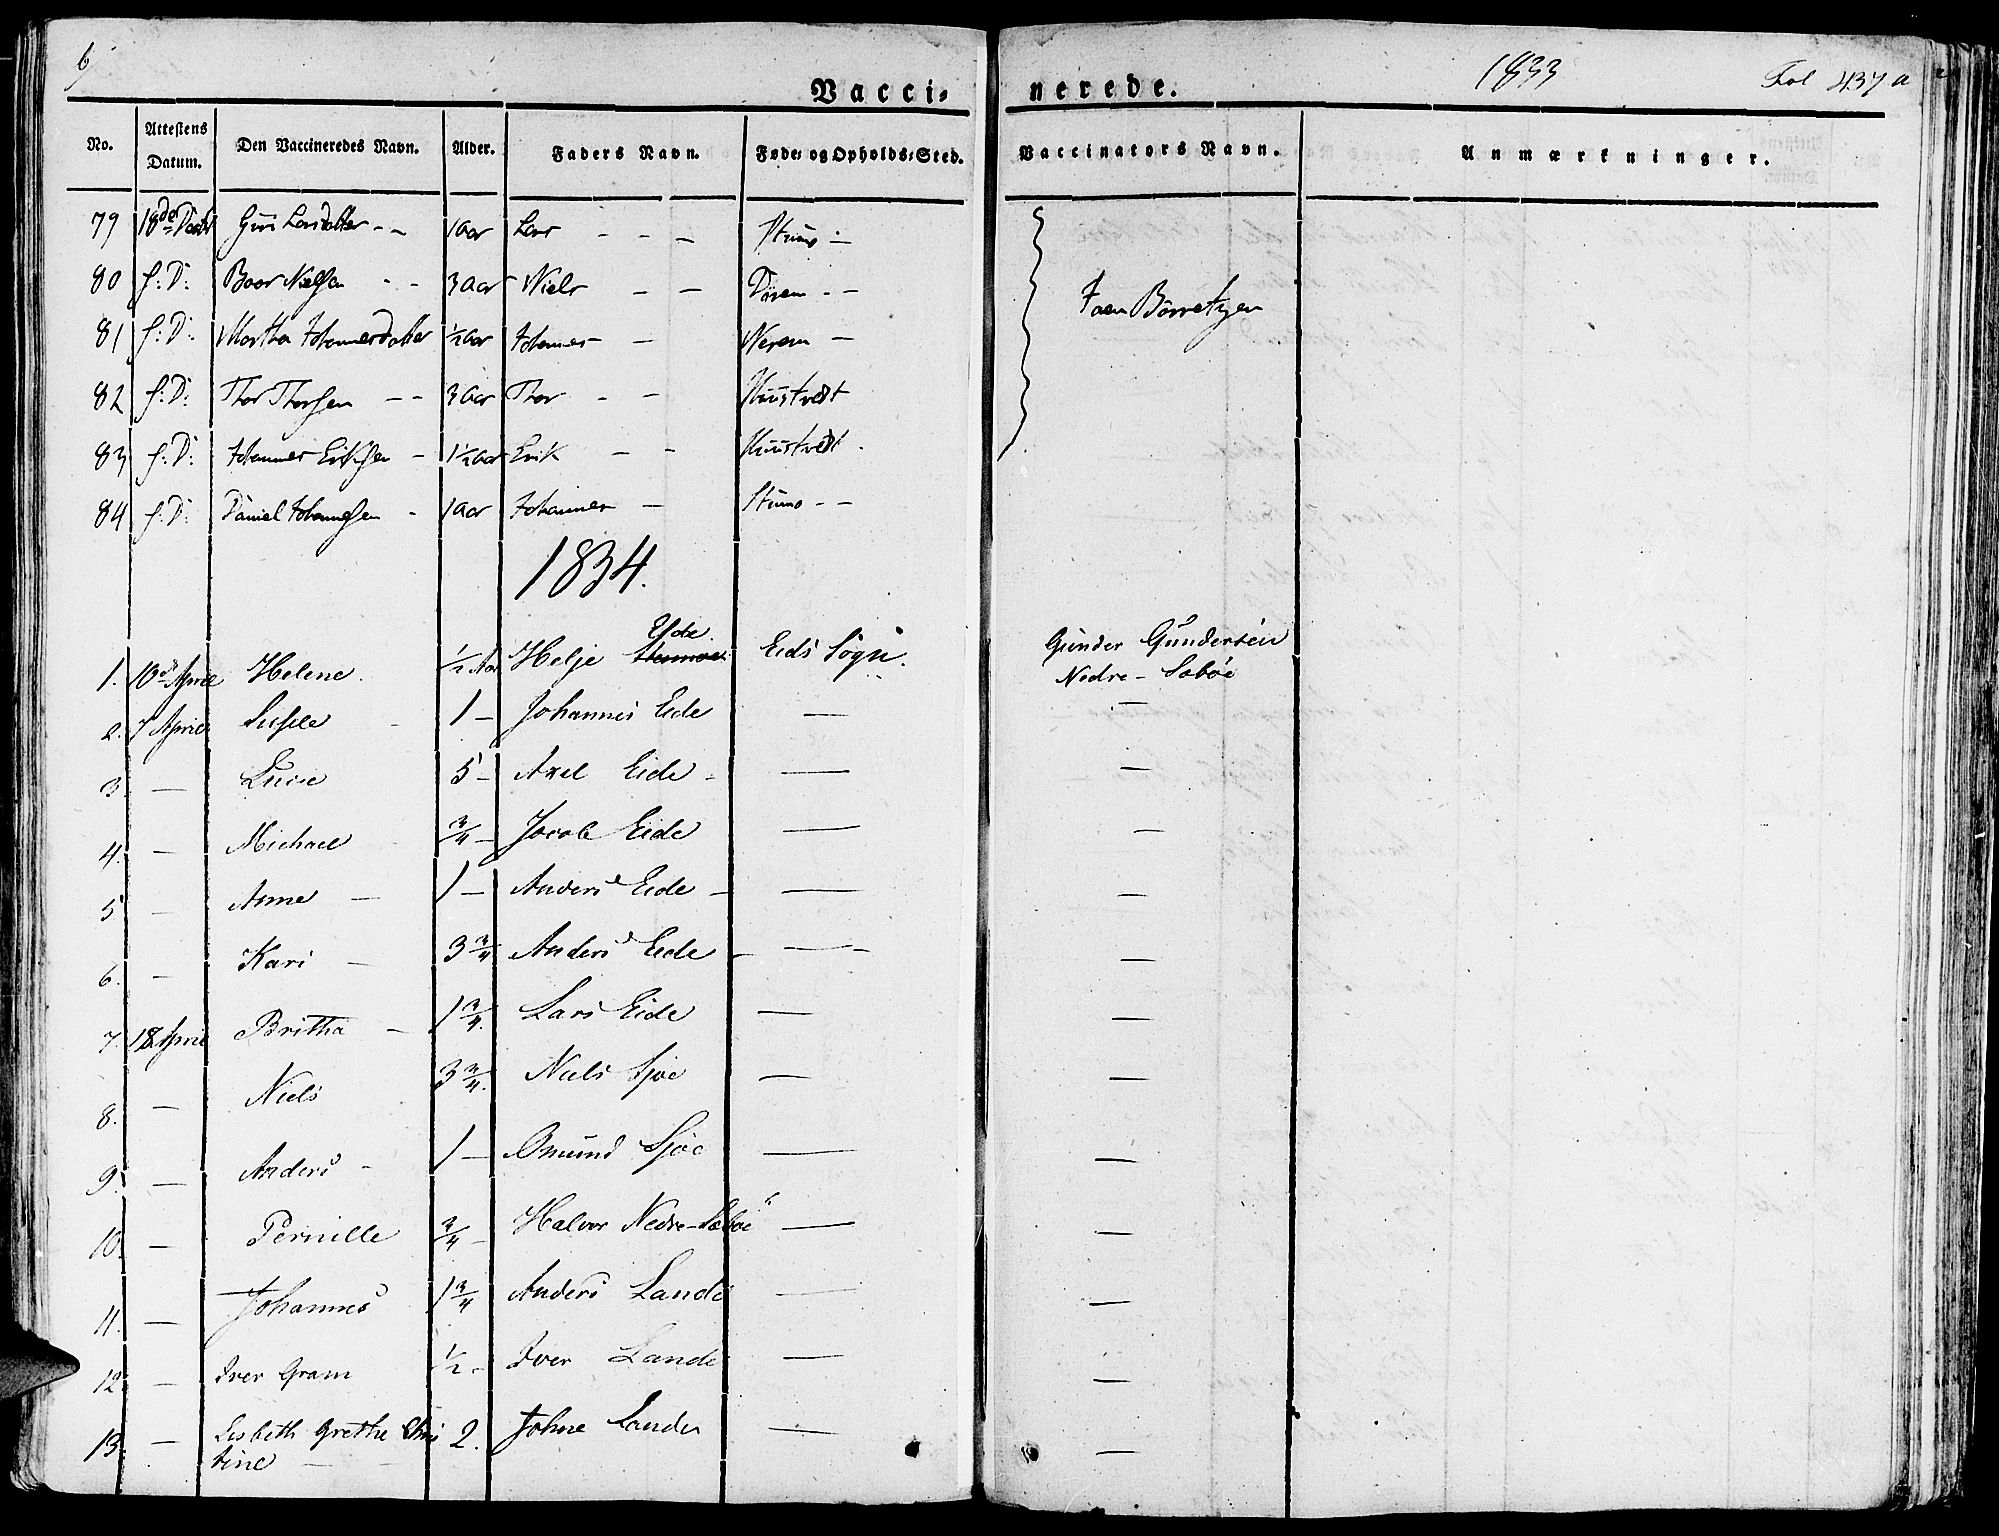 6
1833
Fol 437 a
Vacci-nerede.
No. Attestens Datum. Den Vaccineredes Navn. Alder. Faders Navn. Føde- og Opholds-Sted. Vaccinators Navn. Anmærkninger.
79 18de Guri Larsdatter - - 1 aar Lars - - - Stumo -
80 s: D: Baar Nielsen - - 3 aar Niels - - - -
81 s: D: Martha Johannesdatter 1/2 aar Johannes - -
82 s: D: Thor Thorsen - - 3 aar Thor - - Huustvedt
83 s: D: Johannes Eriksen - 1 1/2 aar Erik - - Huustvedt -
84 s: D: Daniel Johannesen - 1 aar Johannes - Stumo - -
Børretzen
1834.
1. 10de April Helene. 1/2 Aar Helje Eide Eids Sogn. Gunder Gundersen Nedre-Sæbøe
2. 7 April - 1 - Johannes Eide — —
3. — Lucie 5 - Axel Eide - — —
4. — Michael - 3/4 - Jacob Eide — —
5 — Anne — 1 - Anders Eide - — —
6. — Kari - 3 3/4 Anders Eide - — — —
7. 18 April Britha - 1 3/4. Lars Eide — —
8. — Niels 3 3/4. Niels Sjøe — —
9. — Anders - 1 - Omund Sjøe — —
10. — Pernille 3/4 - Halvor Nedre-Sæbøe — —
11. — Johannes 1 3/4 Anders Lande — —
12. — Iver Gram 1/2 - Iver Lande — —
13. — Lisbeth Grethe Chris 2. Johne Lande — —
tine — —